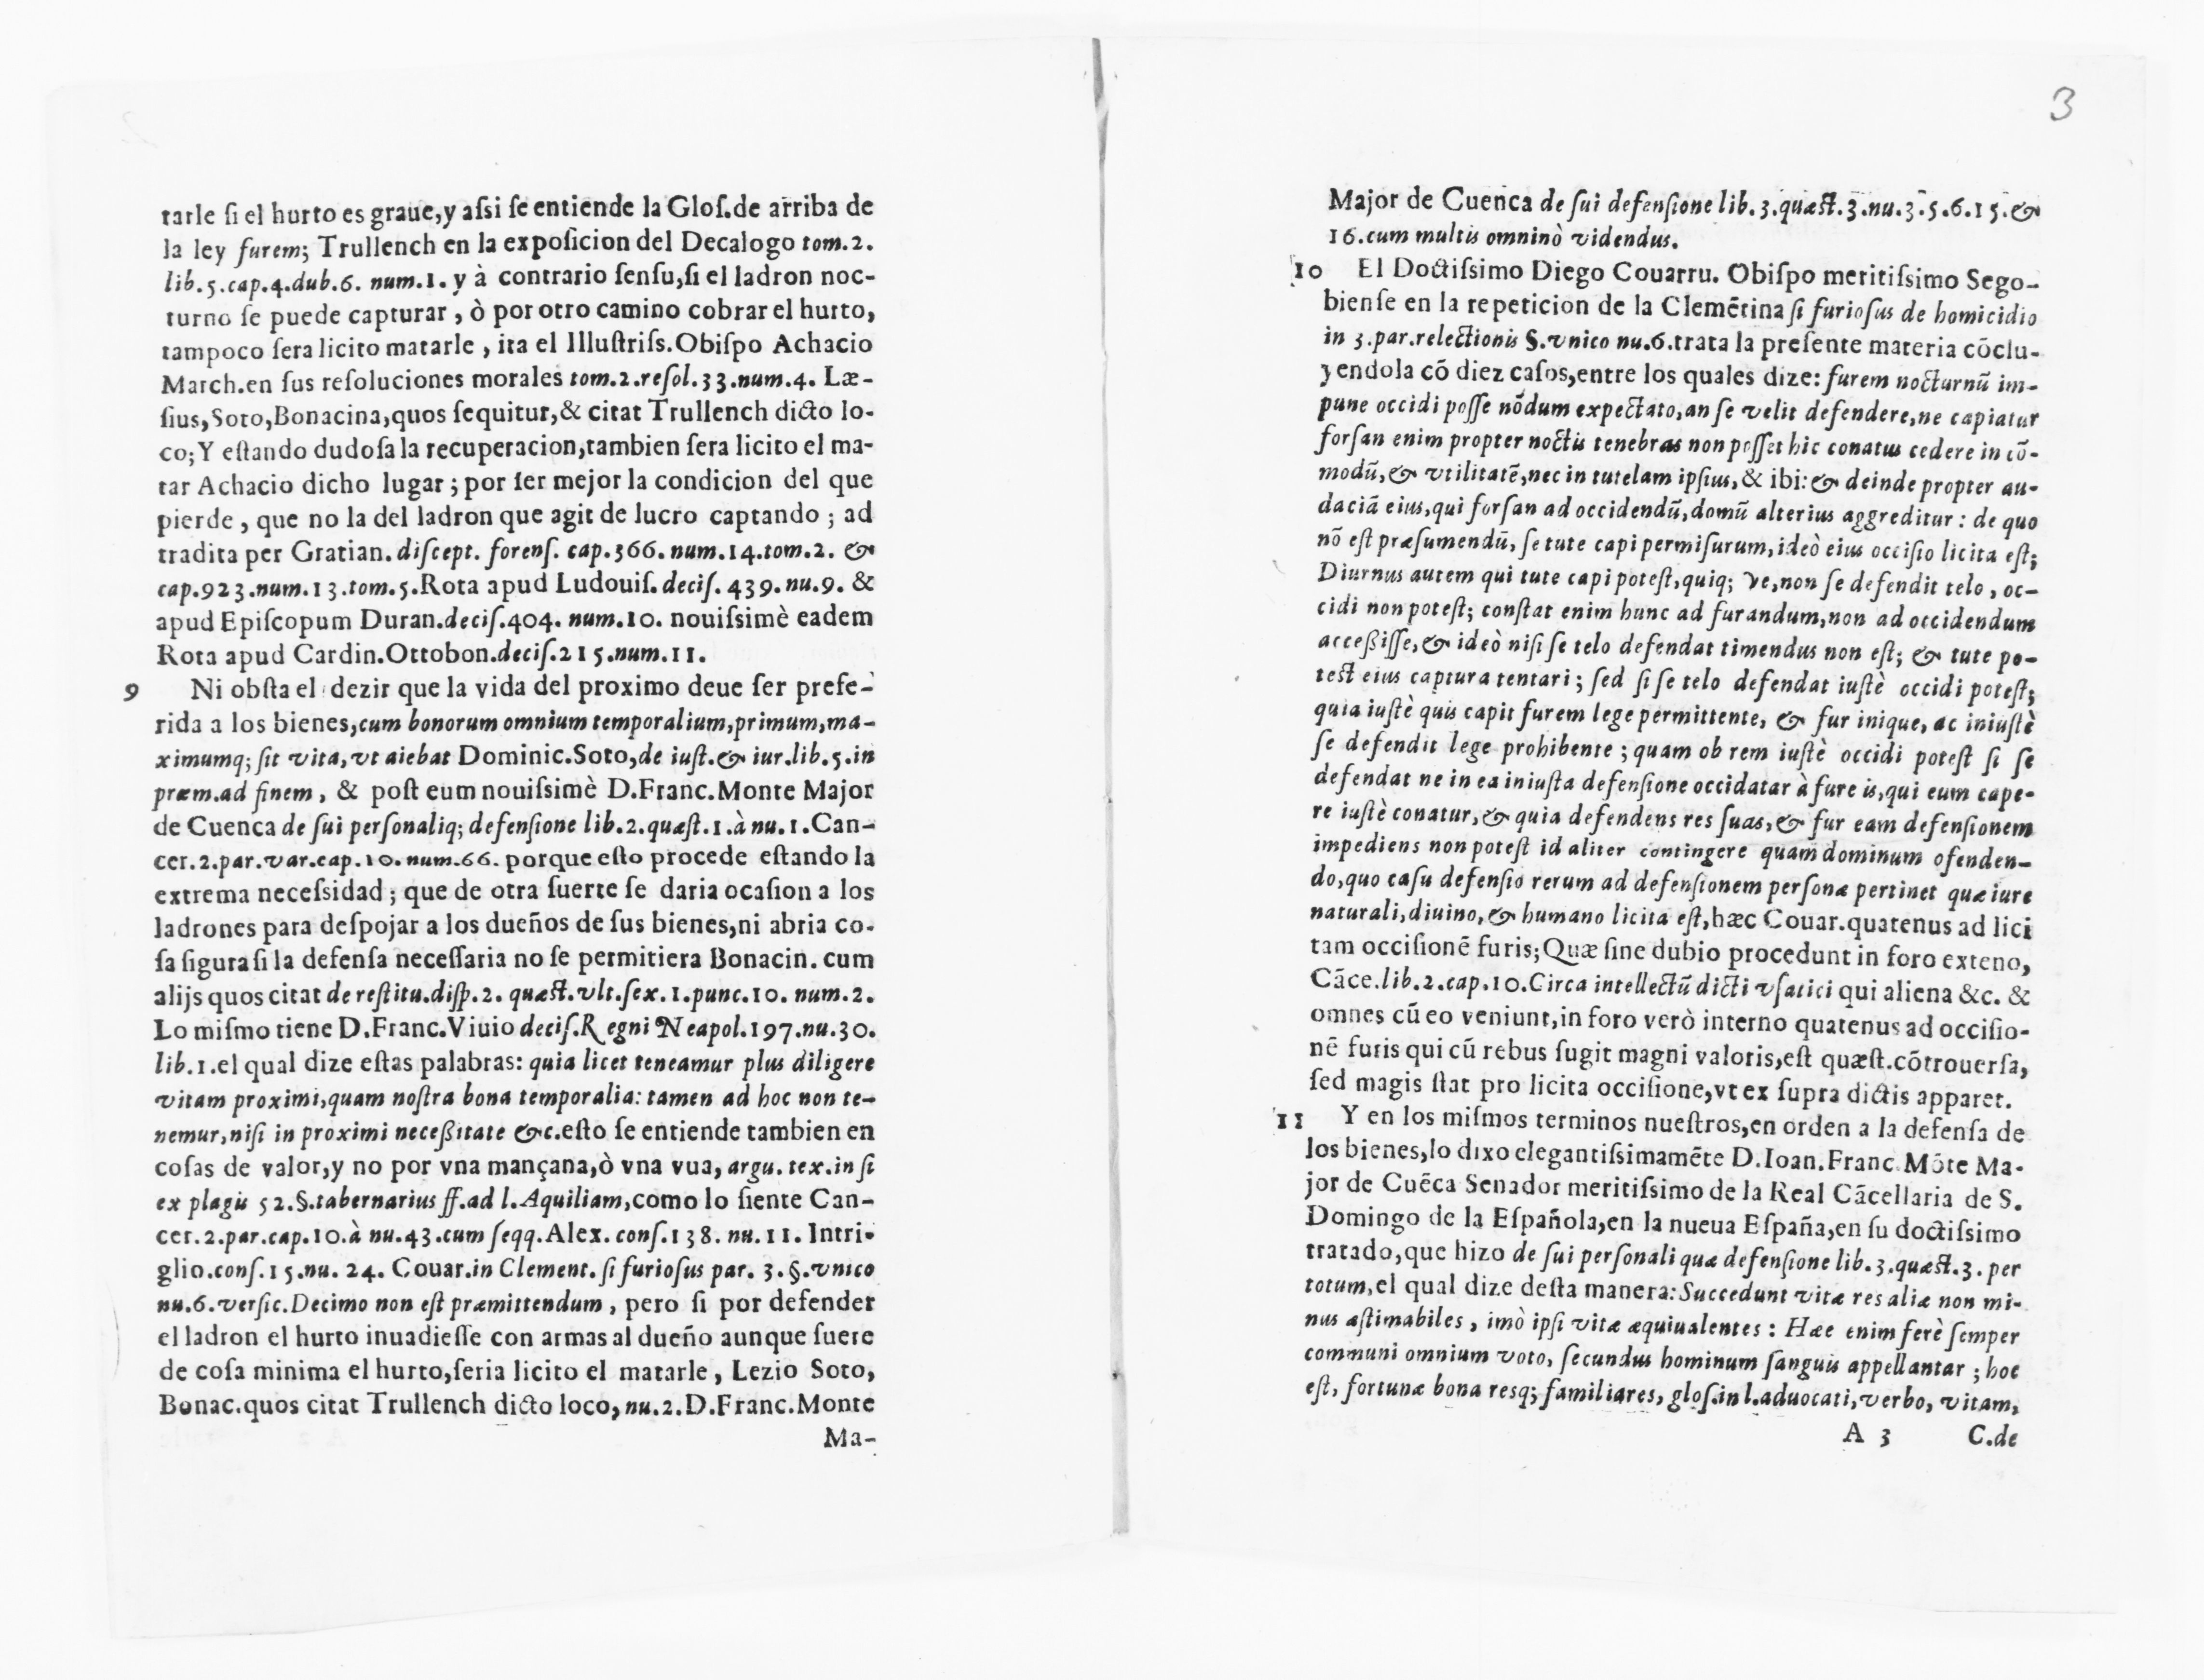 tarle ſi el hurto es graue,y aſsi ſe entiende la Gloſ.de arriba de
la ley furem; Trullench en la expoſicion del Decalogo tom.2.
lib.5.cap.4.dub.6. num.1. y à contrario ſenſu,ſi el ladron noc-
turno ſe puede capturar, ò por otro camino cobrar el hurto,
tampoco ſera licito matarle, ita el Illuſtriſs.Obiſpo Achacio
March.en ſus reſoluciones morales tom.2.reſol.33.num.4. Læ-
ſius,Soto,Bonacina,quos ſequitur,& citat Trullench dicto lo-
co;Y eſtando dudoſa la recuperacion,tambien ſera licito el ma-
tar Achacio dicho lugar; por ſer mejor la condicion del que
pierde, que no la del ladron que agit de lucro captando; ad
tradita per Gratian. diſcept. forenſ. cap.366. num.14.tom.2. &
cap.923.num.13.tom.5.Rota apud Ludouiſ. deciſ. 439.nu.9. &
apud Epiſcopum Duran.deciſ.404. num.10. nouiſsimè eadem
Rota apud Cardin.Ottobon.deciſ.215.num.11.
9 Ni obſta el dezir que la vida del proximo deue ſer prefe-
rida a los bienes,cum bonorum omnium temporalium,primum,ma-
ximumq; ſit vita, vt aiebat Dominic.Soto,de iuſt.& iur.lib.5.in
præm.ad finem, & poſt eum nouiſsimè D.Franc.Monte Major
de Cuenca de ſui perſonaliq; defenſione lib.2.quæſt.1.à nu.1.Can-
cer.2.par.var.cap.10.num.66. porque eſto procede eſtando la
extrema neceſsidad; que de otra ſuerte ſe daria ocaſion a los
ladrones para deſpojar a los dueños de ſus bienes,ni abria co-
ſa ſigura ſi la defenſa neceſſaria no ſe permitiera Bonacin. cum
alijs quos citat de reſtitu.diſp.2. quæſt.vlt.ſex.1.punc.10. num.2.
Lo miſmo tiene D.Franc.Viuio deciſ.Regni Neapol.197.nu.30.
lib.1.el qual dize eſtas palabras: quia licet teneamur plus diligere
vitam proximi,quam noſtra bona temporalia: tamen ad hoc non te-
nemur,niſi in proximi neceßitate &c.eſto ſe entiende tambien en
coſas de valor,y no por vna mançana,ò vna vua, argu. tex.in ſi
ex plagis 52.§.tabernarius ff.ad l.Aquiliam,como lo ſiente Can-
cer.2.par.cap.10.à nu.43.cum ſeqq.Alex. conſ.138. nu.11. Intri-
glio.conſ.15.nu. 24. Couar.in Clement. ſi furioſus par. 3.§.vnico
nu.6.verſic.Decimo non eſt præmittendum, pero ſi por defender
el ladron el hurto inuadieſſe con armas al dueño aunque fuere
de coſa minima el hurto,ſeria licito el matarle, Lezio Soto,
Bonac.quos citat Trullench dicto loco, nu.2.D.Franc.Monte
Ma-
3
Major de Cuenca de ſui defenſione lib.3.quæſt.3.nu.3.5.6.15.&
16.cum multis omninò videndus.
10 El Doctiſsimo Diego Couarru. Obiſpo meritiſsimo Sego-
bienſe en la repeticion de la Clemẽtina ſi furioſus de homicidio
in 3.par.relectionis §.vnico nu.6.trata la preſente materia cõclu-
yendola cõ diez caſos,entre los quales dize: furem nocturnũ im-
pune occidi poſſe nõdum expectato,an ſe velit defendere,ne capiatur
forſan enim propter noctis tenebras non poſſet hic conatus cedere in cõ-
modũ,& vtilitatẽ,nec in tutelam ipſius,& ibi:& deinde propter au-
daciã eius,qui forſan ad occidendũ,domũ alterius aggreditur: de quo
nõ eſt præſumendũ, ſe tute capi permiſurum,ideò eius occiſio licita eſt;
Diurnus autem qui tute capi poteſt,quiq; ve,non ſe defendit telo, oc-
cidi non poteſt; conſtat enim hunc ad furandum,non ad occidendum
acceßiſſe,& ideò niſi ſe telo defendat timendus non eſt; & tute po-
teſt eius captura tentari; ſed ſi ſe telo defendat iuſtè occidi poteſt;
quia iuſtè quis capit furem lege permittente, & fur inique, ac iniuſtè
ſe defendit lege prohibente; quam ob rem iuſtè occidi poteſt ſi ſe
defendat ne in ea iniuſta defenſione occidatar à fure is,qui eum cape-
re iuſtè conatur,& quia defendens res ſuas,& fur eam defenſionem
impediens non poteſt id aliter contingere quam dominum ofenden-
do,quo caſu defenſio rerum ad defenſionem perſonæ pertinet quæ iure
naturali,diuino,& humano licita eſt,hæc Couar.quatenus ad lici
tam occiſionẽ furis;Quæ ſine dubio procedunt in foro exteno,
Cãce.lib.2.cap.10.Circa intellectũ dicti vſatici qui aliena &c. &
omnes cũ eo veniunt,in foro verò interno quatenus ad occiſio-
nẽ furis qui cũ rebus fugit magni valoris,eſt quæſt.cõtrouerſa,
ſed magis ſtat pro licita occiſione,vt ex ſupra dictis apparet.
11 Y en los miſmos terminos nueſtros,en orden a la defenſa de
los bienes,lo dixo elegantiſsimamẽte D.Ioan.Franc.Mõte Ma-
jor de Cuẽca Senador meritiſsimo de la Real Cãcellaria de S.
Domingo de la Eſpañola,en la nueua Eſpaña,en ſu doctiſsimo
tratado,que hizo de ſui perſonali quæ defenſione lib.3.quæſt.3. per
totum,el qual dize deſta manera:Succedunt vitæ res aliæ non mi-
nus æſtimabiles, imò ipſi vitæ æquiualentes: Hæe enim ferè ſemper
communi omnium voto, ſecundus hominum ſanguis appellantar; hoc
eſt, fortunæ bona resq; familiares, gloſ.in l.aduocati,verbo, vitam,
A 3 C.de